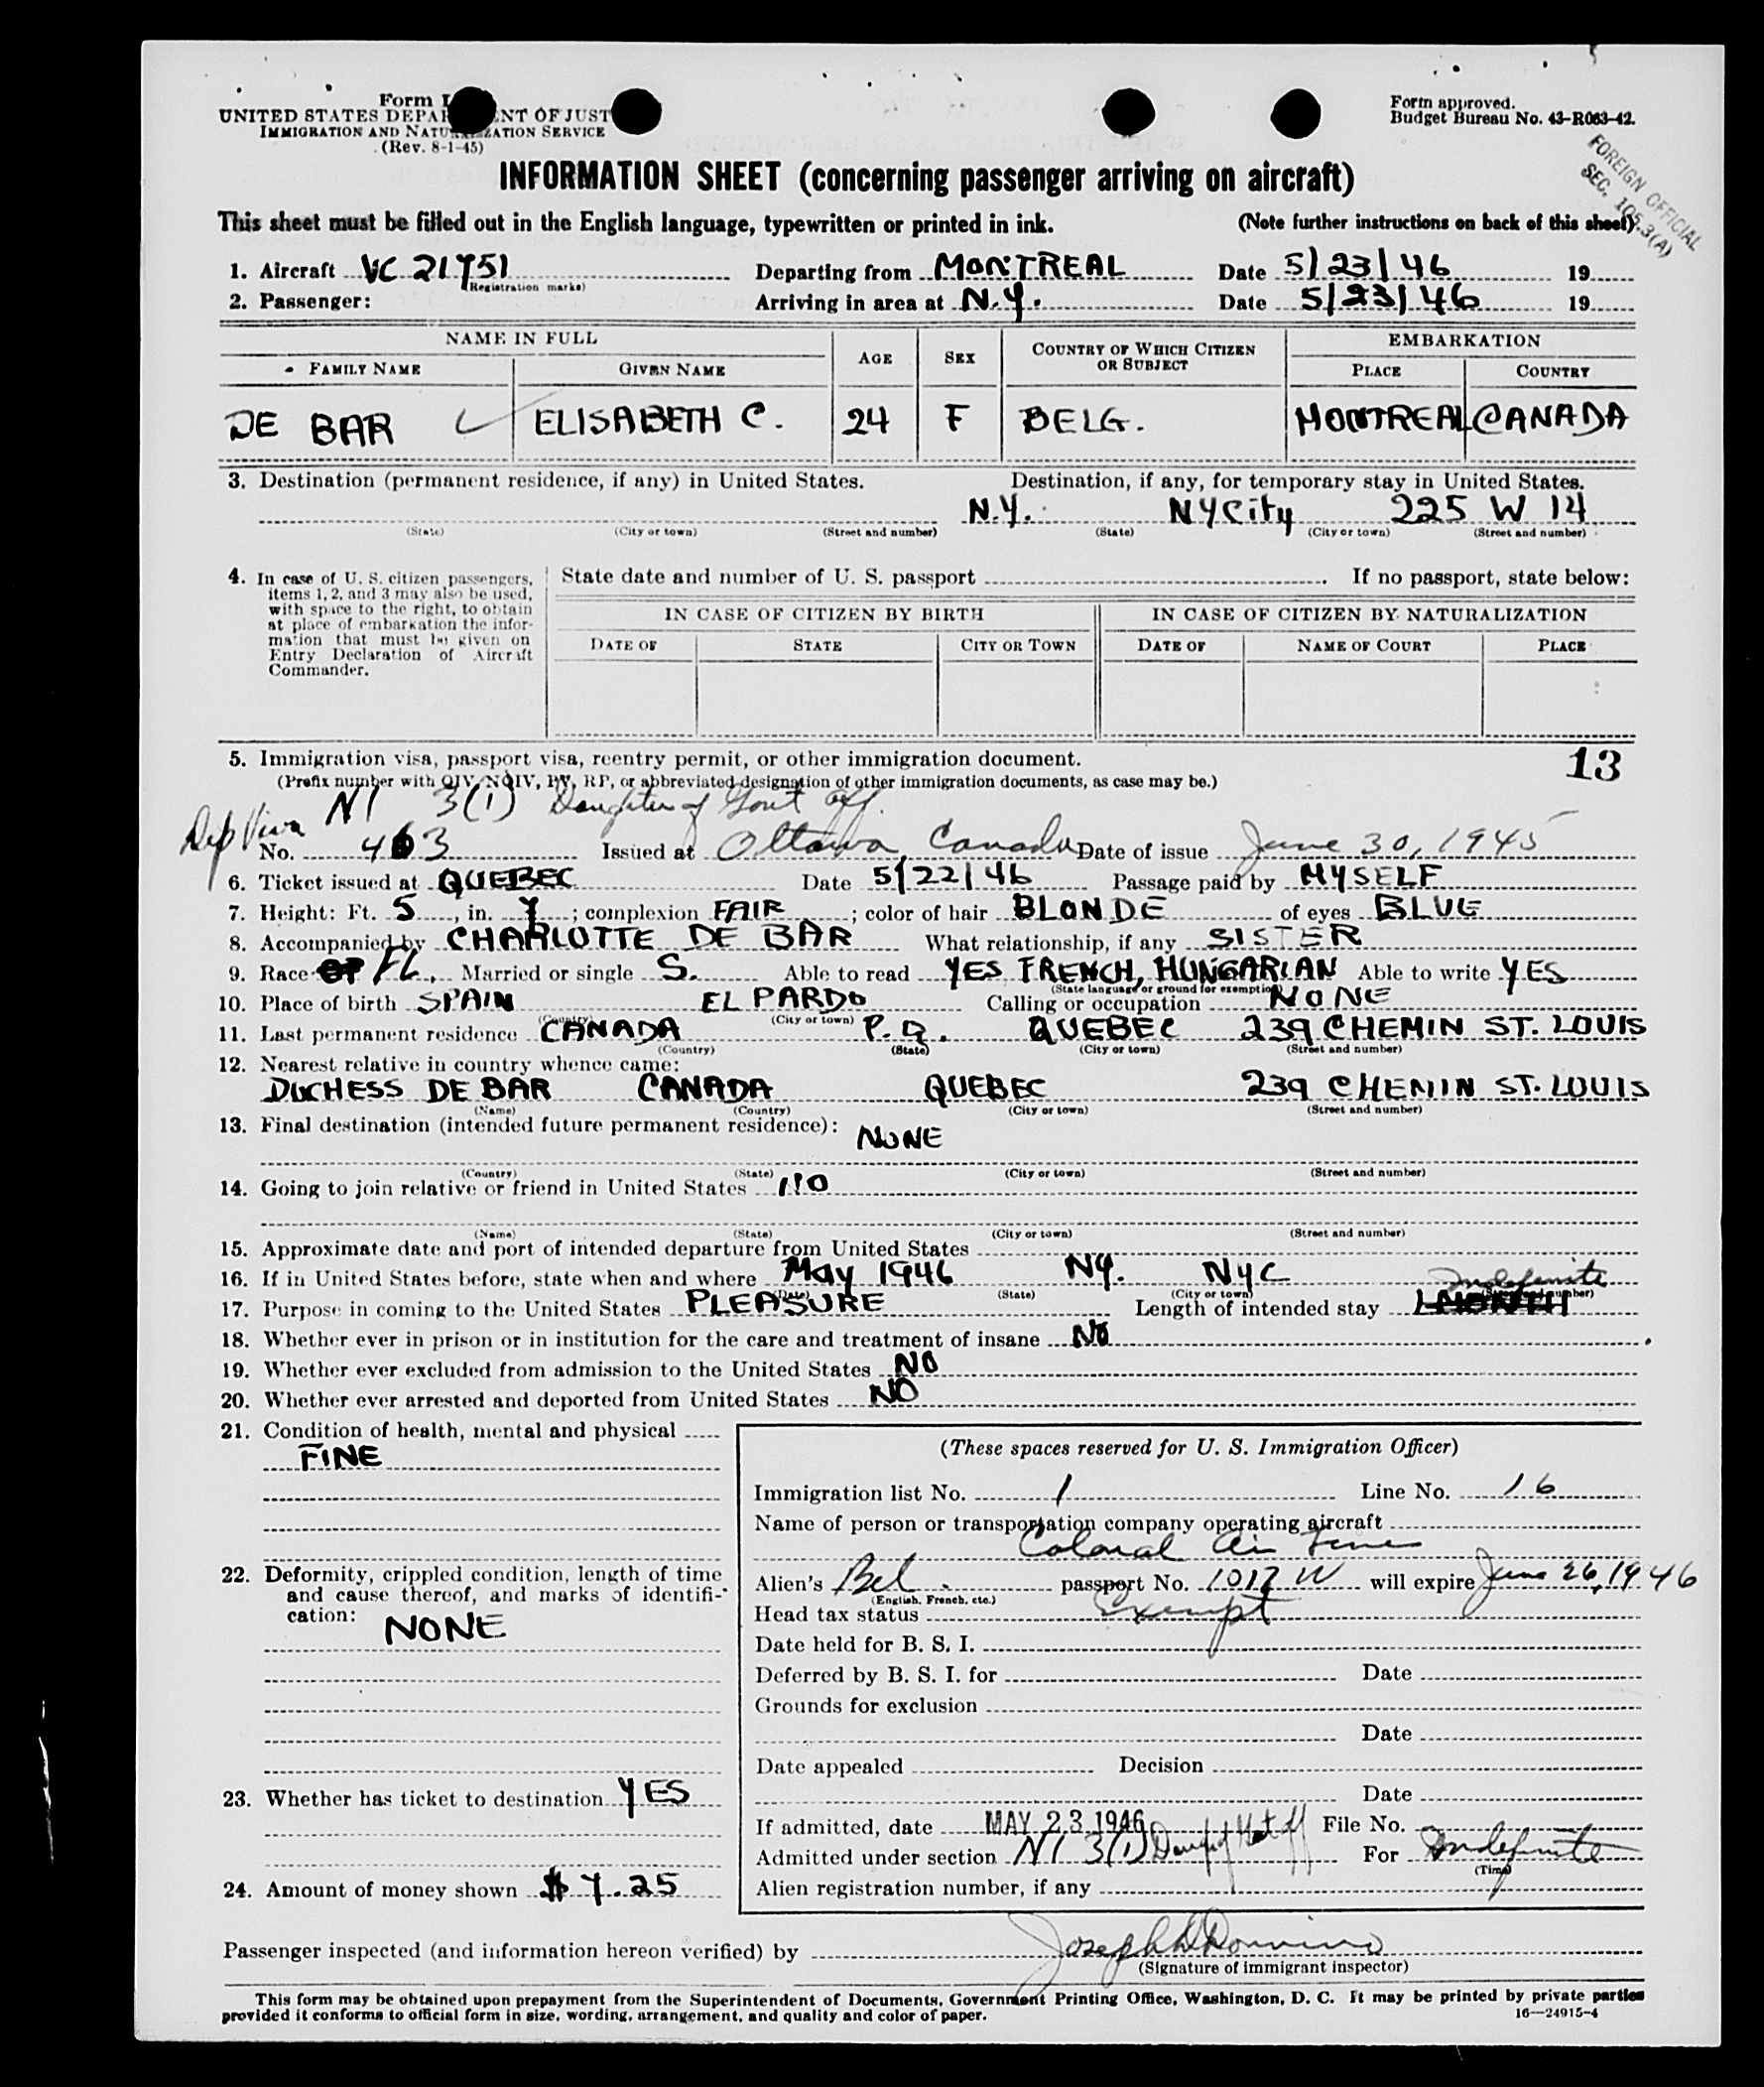 Form I
UNITED STATES DEPAR NT OF JUST
IMMIGRATION AND NATURALIZATION SERVICE
(Rev. 8-1-45)
Form approved.
Budget Bureau No. 43-R063-42.
FOREIGN OFFICIAL
SEC. 105.3(A)
INFORMATION SHEET (concerning passenger arriving on aircraft)
This sheet must be filled out in the English language, typewritten or printed in ink. (Note further instructions on back of this sheet).
1. Aircraft 21751 Departing from MONTREAL Date 5/23/46 19
(Registration marks)
2. Passenger: Arriving in area at N.Y. Date 5/23/46 19
NAME IN FULL AGE SEX COUNTRY OF WHICH CITIZEN OR SUBJECT EMBARKATION
FAMILY NAME GIVEN NAME PLACE COUNTRY
DE BAR ELISABETH C. 24 F BELG. MONTREAL CANADA
3. Destination (permanent residence, if any) in United States. Destination, if any, for temporary stay in United States.
N.Y. NYCity 225 W 14
(State) (City or town) (Street and number) (State) (City or town) (Street and number)
4. In case of U. S. citizen passengers, items 1, 2, and 3 may also be used, with space to the right, to obtain at place of embarkation the information that must be given on Entry Declaration of Aircraft Commander.
State date and number of U. S. passport . If no passport, state below:
IN CASE OF CITIZEN BY BIRTH IN CASE OF CITIZEN BY NATURALIZATION
DATE OF STATE CITY OR TOWN DATE OF NAME OF COURT PLACE
5. Immigration visa, passport visa, reentry permit, or other immigration document. 13
(Prefix number with QIV, NQIV, PV, RP, or abbreviated designation of other immigration documents, as case may be.)
Dip Visa NI 3(1) Daughter of Govt off.
No. 463 Issued at Ottawa Canada Date of issue June 30, 1945
6. Ticket issued at QUEBEC Date 5/22/46 Passage paid by MYSELF
7. Height: Ft. 5, in. 7; complexion FAIR; color of hair BLONDE of eyes BLUE
8. Accompanied by CHARLOTTE DE BAR What relationship, if any SISTER
9. Race FL, Married or single S. Able to read YES FRENCH, HUNGARIAN Able to write YES
(State language or ground for exemption)
10. Place of birth SPAIN EL PARDO Calling or occupation NONE
(Country) (City or town)
11. Last permanent residence CANADA P.Q. QUEBEC 239 CHEMIN ST. LOUIS
(Country) (State) (City or town) (Street and number)
12. Nearest relative in country whence came:
DUCHESS DE BAR CANADA QUEBEC 239 CHEMIN ST. LOUIS
(Name) (Country) (City or town) (Street and number)
13. Final destination (intended future permanent residence): NONE
(Country) (State) (City or town) (Street and number)
14. Going to join relative or friend in United States NO
(Name) (State) (City or town) (Street and number)
15. Approximate date and port of intended departure from United States
16. If in United States before, state when and where May 1946 NY. NYC Indefinite
(Date) (State) (City or town) (Street and number)
17. Purpose in coming to the United States PLEASURE Length of intended stay 1 MONTH
18. Whether ever in prison or in institution for the care and treatment of insane NO
19. Whether ever excluded from admission to the United States NO
20. Whether ever arrested and deported from United States NO
21. Condition of health, mental and physical
FINE
22. Deformity, crippled condition, length of time and cause thereof, and marks of identification: NONE
23. Whether has ticket to destination YES
24. Amount of money shown $7.25
(These spaces reserved for U. S. Immigration Officer)
Immigration list No. 1 Line No. 16
Name of person or transportation company operating aircraft
Colonial Air Lines
Alien's Bel. passport No. 1017 W will expire June 26, 1946
(English, French, etc.)
Head tax status Exempt
Date held for B. S. I.
Deferred by B. S. I. for Date
Grounds for exclusion
Date
Date appealed Decision
Date
If admitted, date MAY 23 1946 File No.
Admitted under section NI 3(1) For Indefinite
(Time)
Alien registration number, if any
Passenger inspected (and information hereon verified) by Joseph
(Signature of immigrant inspector)
This form may be obtained upon prepayment from the Superintendent of Documents, Government Printing Office, Washington, D. C. It may be printed by private parties
provided it conforms to official form in size, wording, arrangement, and quality and color of paper. 16—24915-4